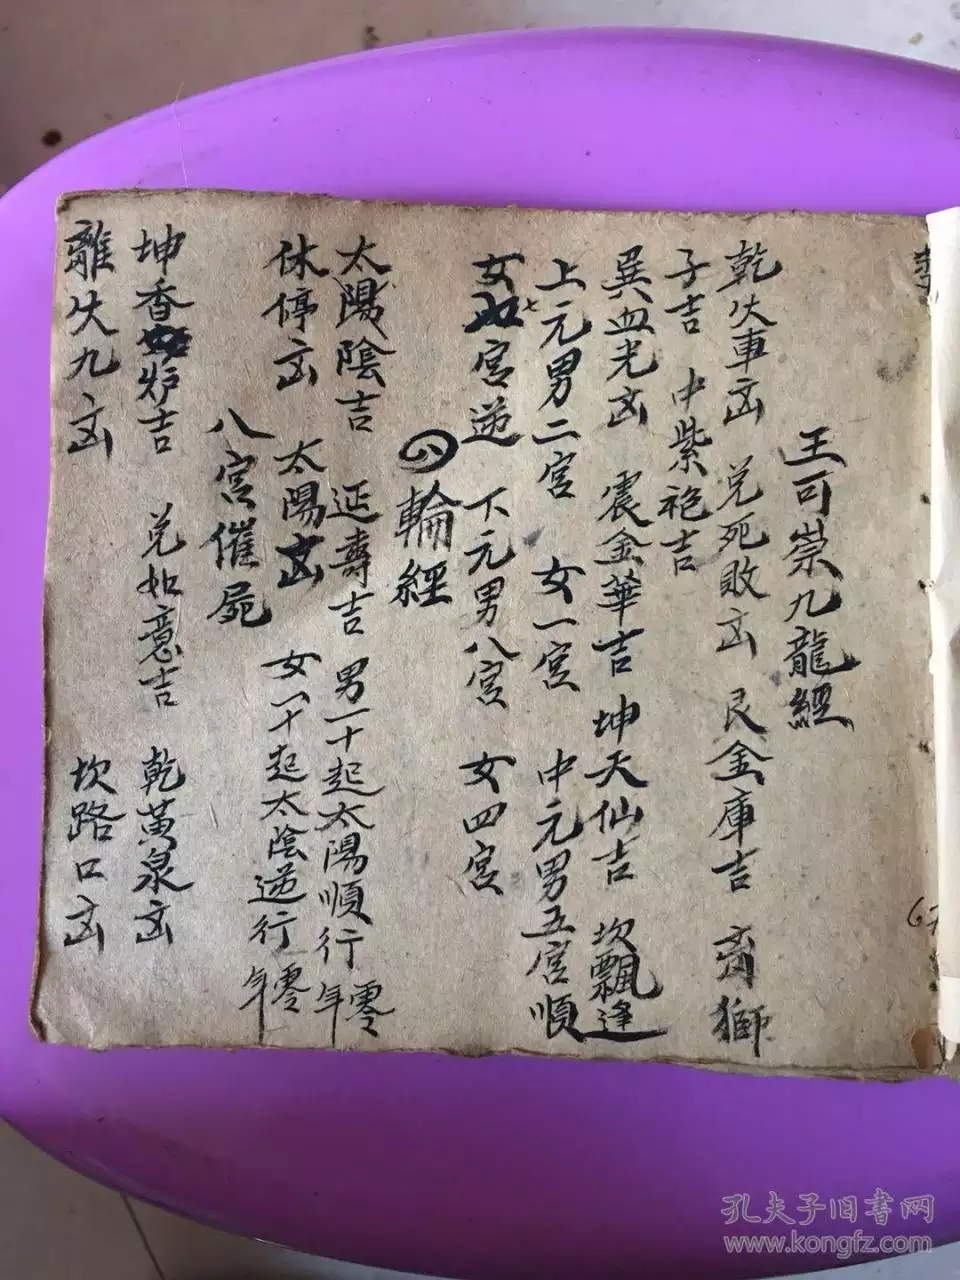 王可崇九龍經
乾火車凶 兑死敗凶 艮金庫吉 离獅
子吉 中紫袍吉
巽血光凶 震金華吉 坤天仙吉 坎飄逢
上元男二宮 女一宮 中元男五宮順
女七宮逆 下元男八宮 女四宮
輪經
太陽陰吉 延壽吉 男一十起太陽順行零年
休停凶 太陽凶 女一十起太陰逆行零年
八宮催屍
坤香炉吉 兑如意吉 乾黃泉凶
離火九凶 坎路口凶
67
孔夫子旧书网
www.kongfz.com